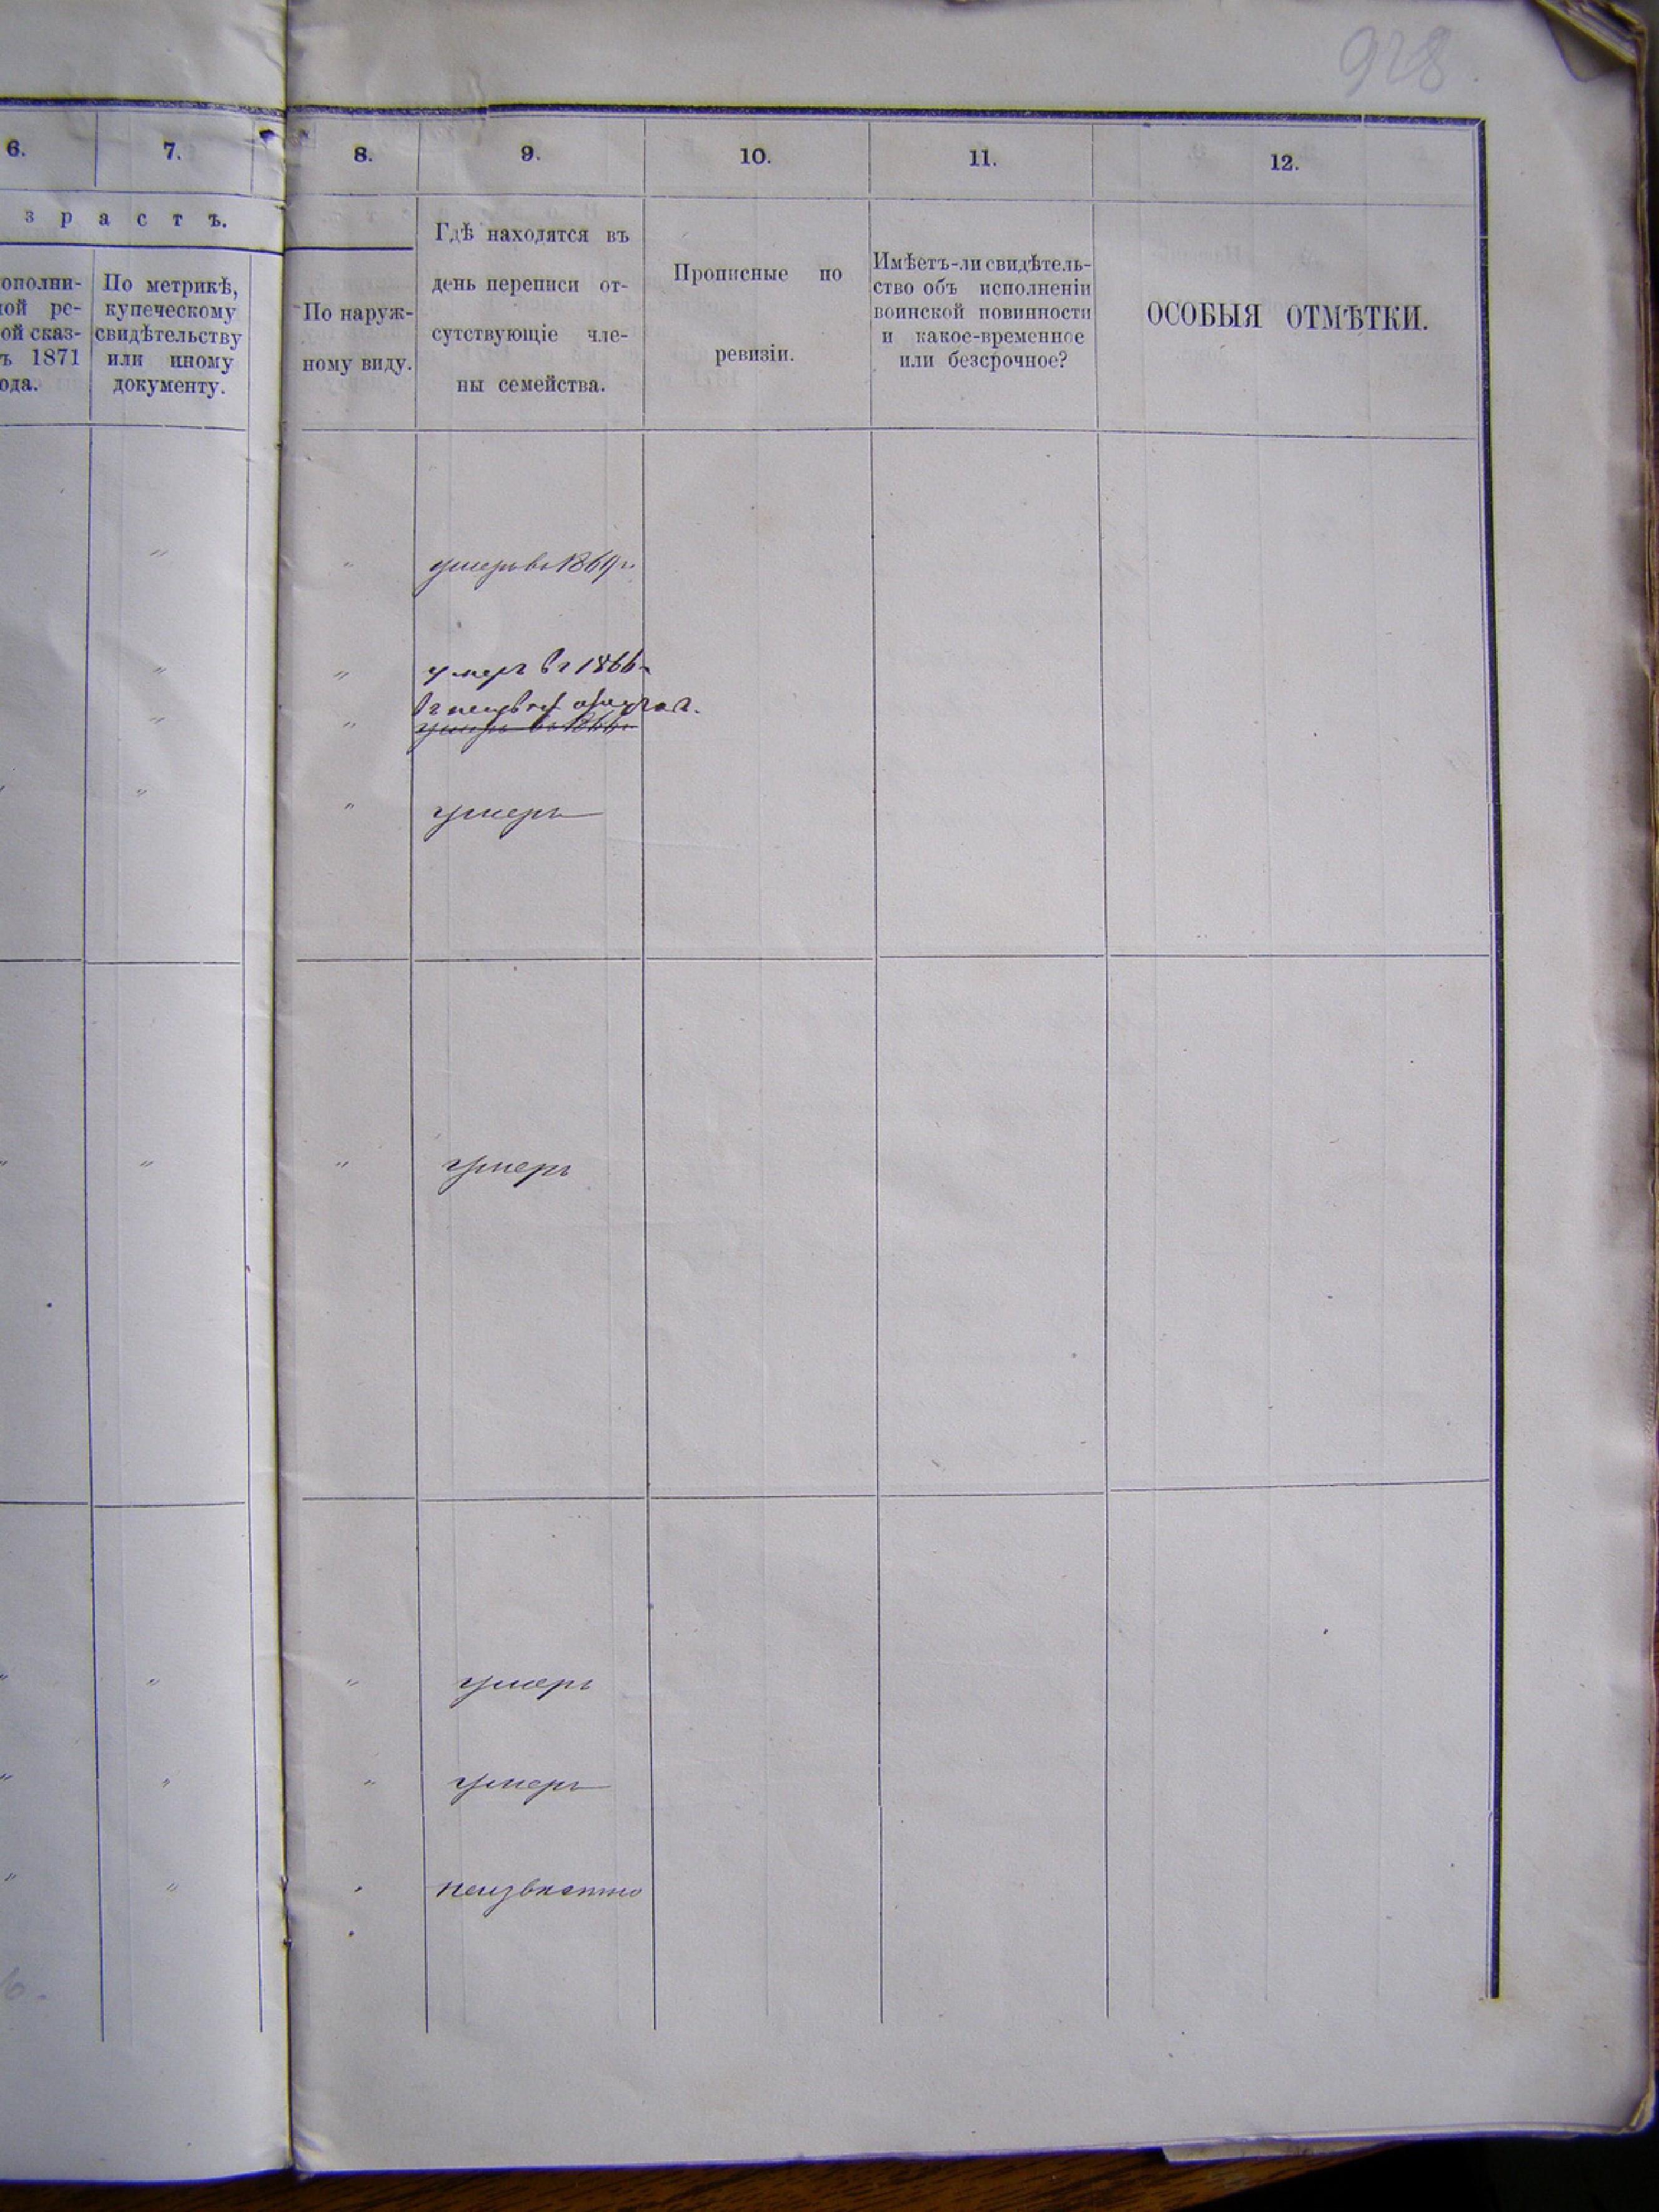 928
6. 7. 8. 9. 10. 11. 12.
зрастъ.
ополни-
ной ре-
ой сказ-
ъ 1871
ода.
По метрикѣ,
купеческому
свидѣтельству
или иному
документу.
По наруж-
ному виду.
Гдѣ находятся въ
день переписи от-
сутствующіе чле-
ны семейства.
Прописные по
ревизіи.
Имѣетъ-ли свидѣтель-
ство объ исполненіи
воинской повинности
и какое-временное
или безсрочное?
ОСОБЫЯ ОТМѢТКИ.
" " умеръ въ 1869 г.
" " умеръ въ 1866 г.
" " умеръ въ 1866 г.
" " умеръ
" " " умеръ
" " " умеръ
" " " умеръ
" " " неизвѣстно